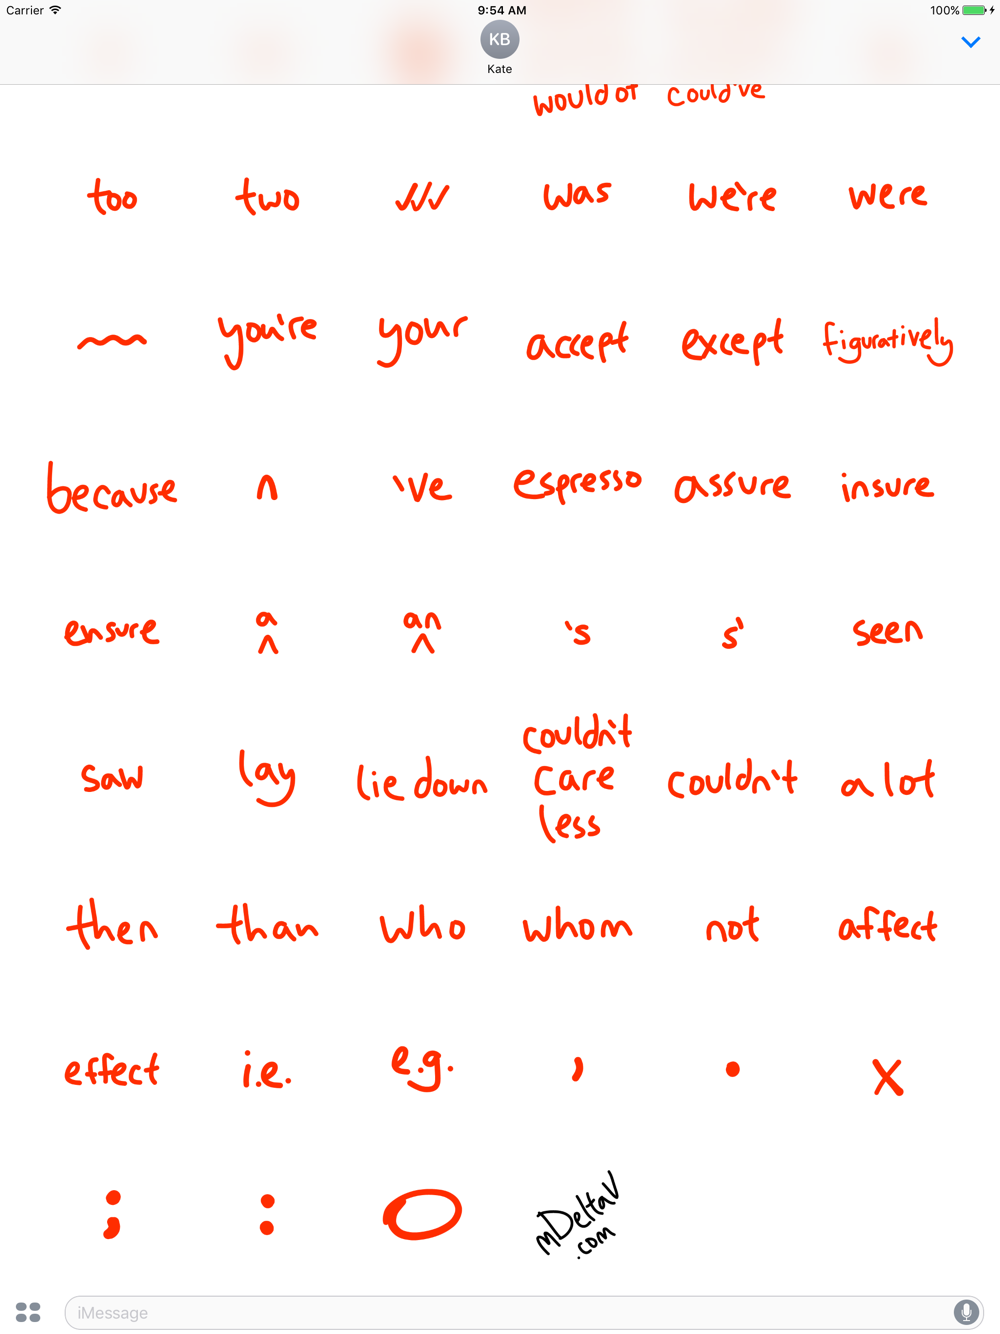 Carrier 9:54 AM 100%
KB
Kate
would of could've
too two was we're were
you're your accept except figuratively
because ^ 've espresso assure insure
a an
ensure ^ ^ 's s' seen
couldn't
saw lay lie down care couldn't a lot
less
then than who whom not affect
effect i.e. e.g. , . x
; :
mDeltaV
.com
iMessage